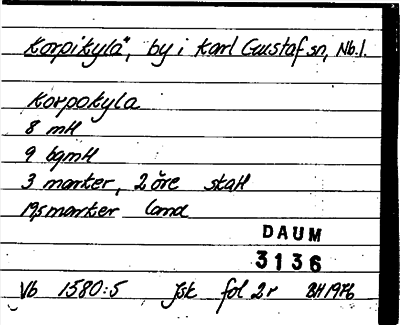 Korpikylä*, by i Karl Gustaf sn, Nb.l.
Korpokyla
8 mtl
9 bgmtl
3 marker, 2 öre skatt
19,5 marker land
DAUM
3136
Vb 1580:5 Jsk fol 2r BH 1976